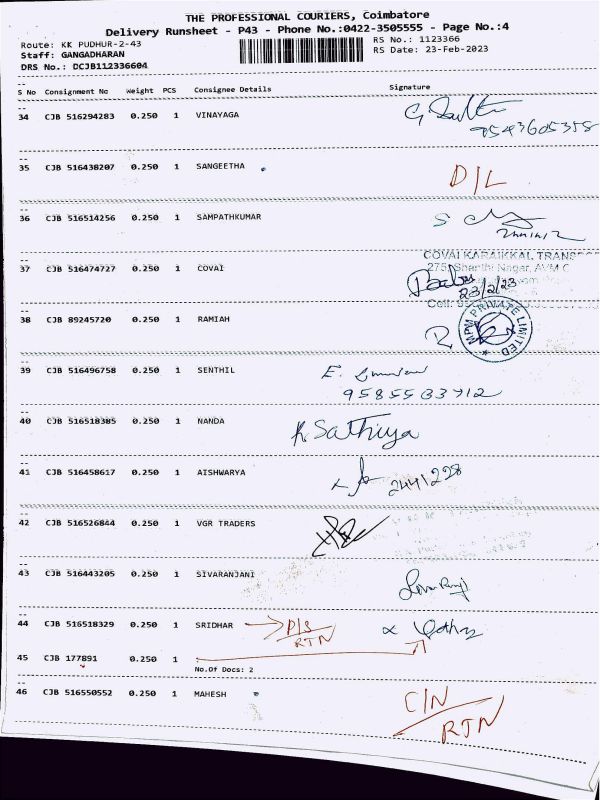 THE PROFESSIONAL COURIERS, Coimbatore
Delivery Runsheet - P43 - Phone No.:0422-3505555 - Page No.:4
Route: KK PUDHUR-2-43
RS No.: 1123366
Staff: GANGADHARAN
RS Date: 23-Feb-2023
DRS No.: DCJB112336604
S No Consignment No Weight PCS Consignee Details Signature
34 CJB 516294283 0.250 1 VINAYAGA
9543605358
35 CJB 516438207 0.250 1 SANGEETHA D/L
36 CJB 516514256 0.250 1 SAMPATHKUMAR
COVAI KARAIKKAL TRANS
37 CJB 516474727 0.250 1 COVAI 275, Shanthi Nagar, AVM C
Babu
23/2/23
Cell:
38 CJB 89245720 0.250 1 RAMIAH
MPM PRIVATE LIMITED
39 CJB 516496758 0.250 1 SENTHIL
40 CJB 516518385 0.250 1 NANDA K. Sathiya
41 CJB 516458617 0.250 1 AISHWARYA 2441228
42 CJB 516526844 0.250 1 VGR TRADERS
43 CJB 516443205 0.250 1 SIVARANJANI
44 CJB 516518329 0.250 1 SRIDHAR P/S
RTN
45 CJB 177891 0.250 1
No.Of Docs: 2
46 CJB 516550552 0.250 1 MAHESH C/N
RTN